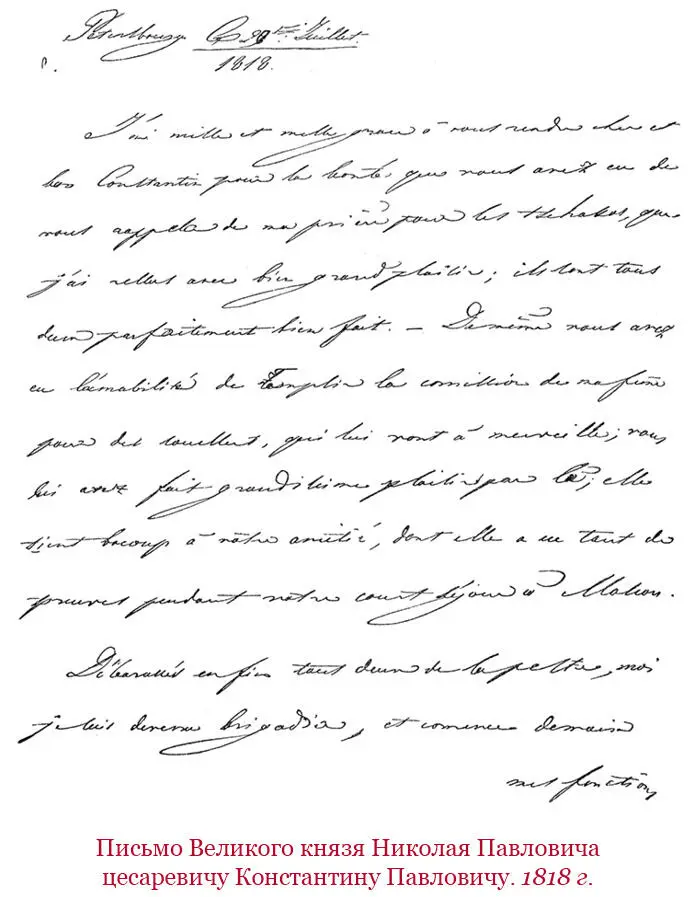 Petersbourg Ce 30me Juillet.
1818.
J'ai mille et mille grace à vous rendre cher et
bon Constantin pour la bonté que vous avez eu de
vous rappeler de ma prière pour les tschakos, que
j'ai reçus avec bien grand plaisir; ils sont tous
deux parfaitement bien fait. — De même vous avez
eu l'amabilité de remplir la comission de ma femme
pour des souliers, qui lui vont à merveille; vous
lui avez fait grandissime plaisir par là; elle
tient baucoup à vôtre amitié, dont elle a eu tant de
preuves pendant notre court séjour à Moscou.
Débarassés enfin tout deux de la peste, moi
je suis devenu brigadier, et comence demain
mes fonctions
Письмо Великого князя Николая Павловича
цесаревичу Константину Павловичу. 1818 г.